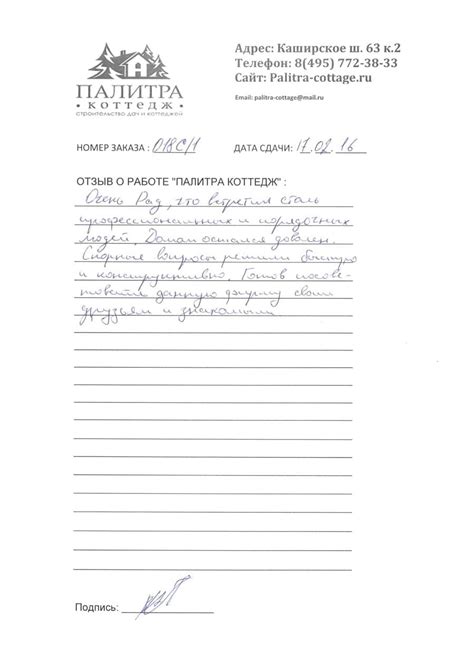 ПАЛИТРА
КОТТЕДЖ
СТРОИТЕЛЬСТВО ДАЧ И КОТТЕДЖЕЙ
Адрес: Каширское ш. 63 к.2
Телефон: 8(495) 772-38-33
Сайт: Palitra-cottage.ru
Email: palitra-cottage@mail.ru
НОМЕР ЗАКАЗА : 018С/1
ДАТА СДАЧИ: 17.02.16
ОТЗЫВ О РАБОТЕ "ПАЛИТРА КОТТЕДЖ" :
Очень Рад, что встретил столь
профессиональных и порядочных
людей. Домом остался доволен.
Спорные вопросы решили быстро
и конструктивно. Готов посове-
товать данную фирму своим
друзьям и знакомым
Подпись: